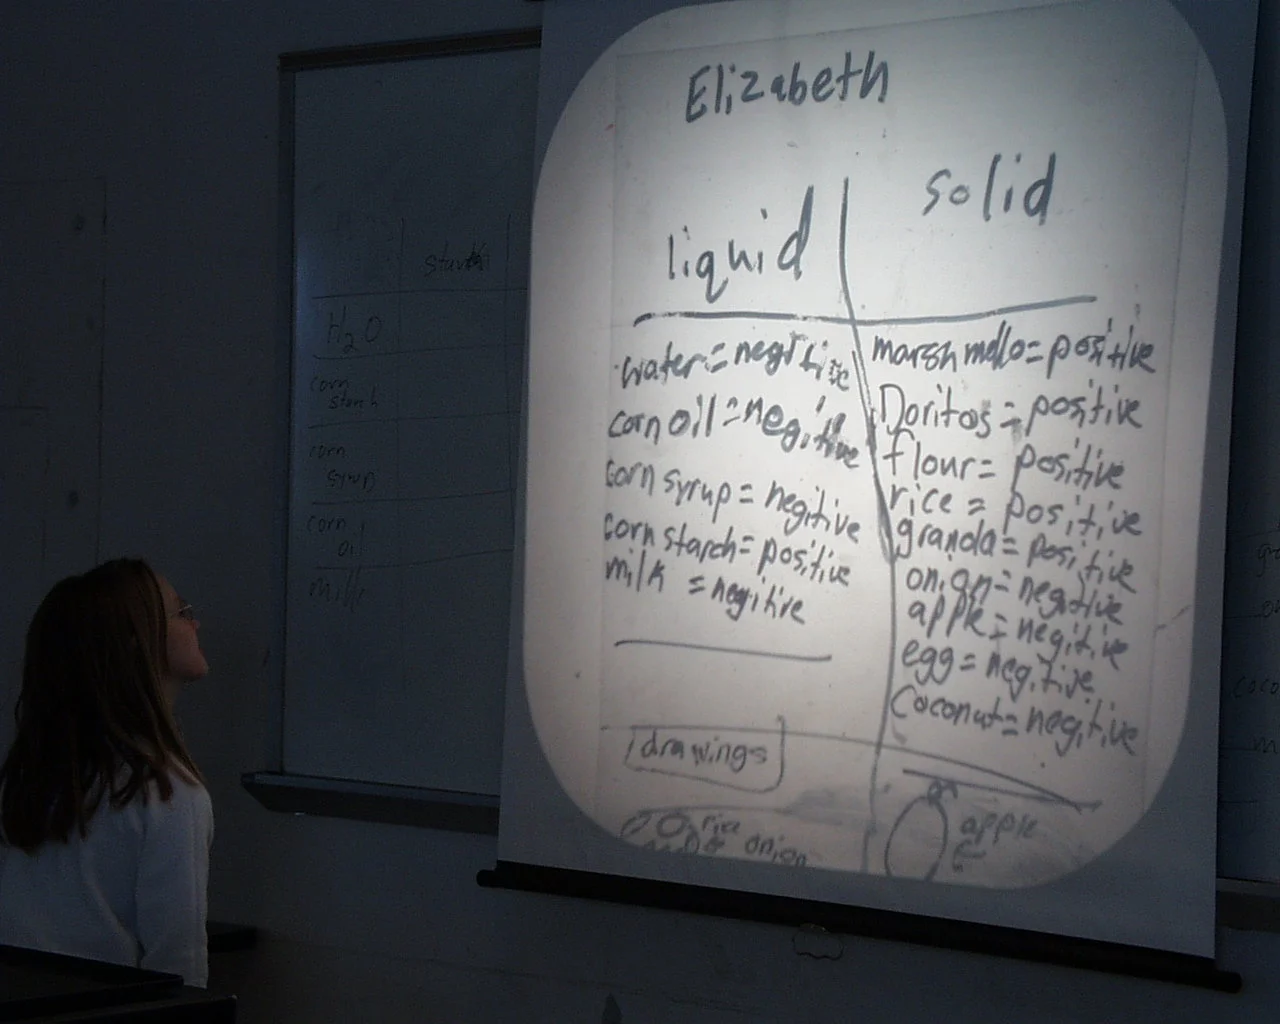 Elizabeth
liquid
solid
water = negitive
corn oil = negitive
corn syrup = negitive
corn starch = positive
milk = negitive
marsh mello = positive
Doritos = positive
flour = positive
rice = positive
granola = positive
onion = negative
apple = negitive
egg = negitive
Coconut = negitive
drawings
rice
onion
apple
starch
H2O
corn
starch
corn
syrup
corn
oil
milk